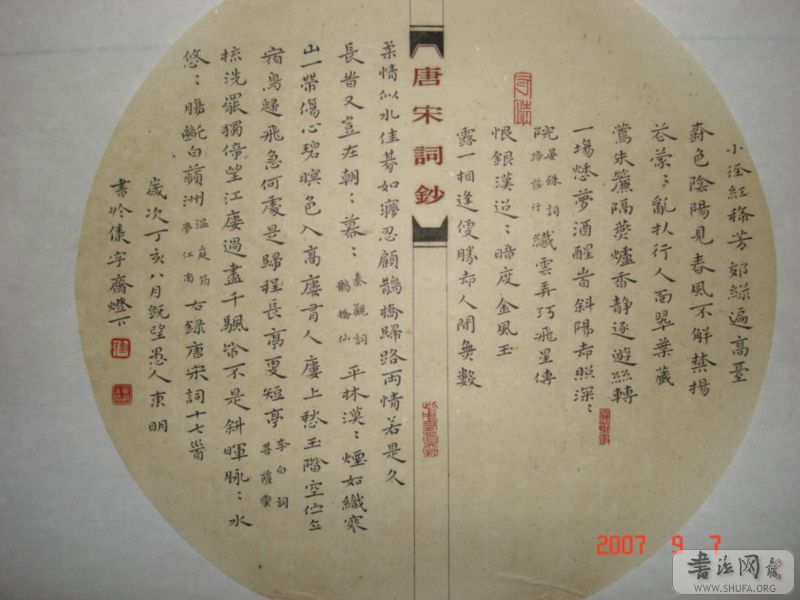 小徑紅稀芳郊綠遍高臺
樹色陰陽見春風不解禁揚
花蒙：亂扑行人面翠葉藏
鶯朱簾隔燕爐香静逐遊絲轉
一場愁夢酒醒時斜陽却照深：
院晏殊詞踏莎行纖雲弄巧飛星傳
恨銀漢迢：暗度金風玉
露一相逢便勝却人間無數
唐宋詞鈔
柔情似水佳期如夢忍顧鵲橋歸路兩情若是久
長時又豈在朝：暮：秦觀詞鵲橋仙平林漠：煙如織寒
山一帶傷心碧暝色入高樓有人樓上愁玉階空佇立
宿鳥歸飛急何處是歸程長亭更短亭李白詞菩薩蠻
梳洗罷獨倚望江樓過盡千颿皆不是斜暉脉：水
悠：腸斷白蘋洲溫庭筠夢江南右錄唐宋詞十七首
歲次丁亥八月既望愚人東明
書於集字齋燈下
2007 9 7
書法网
WWW.SHUFA.ORG